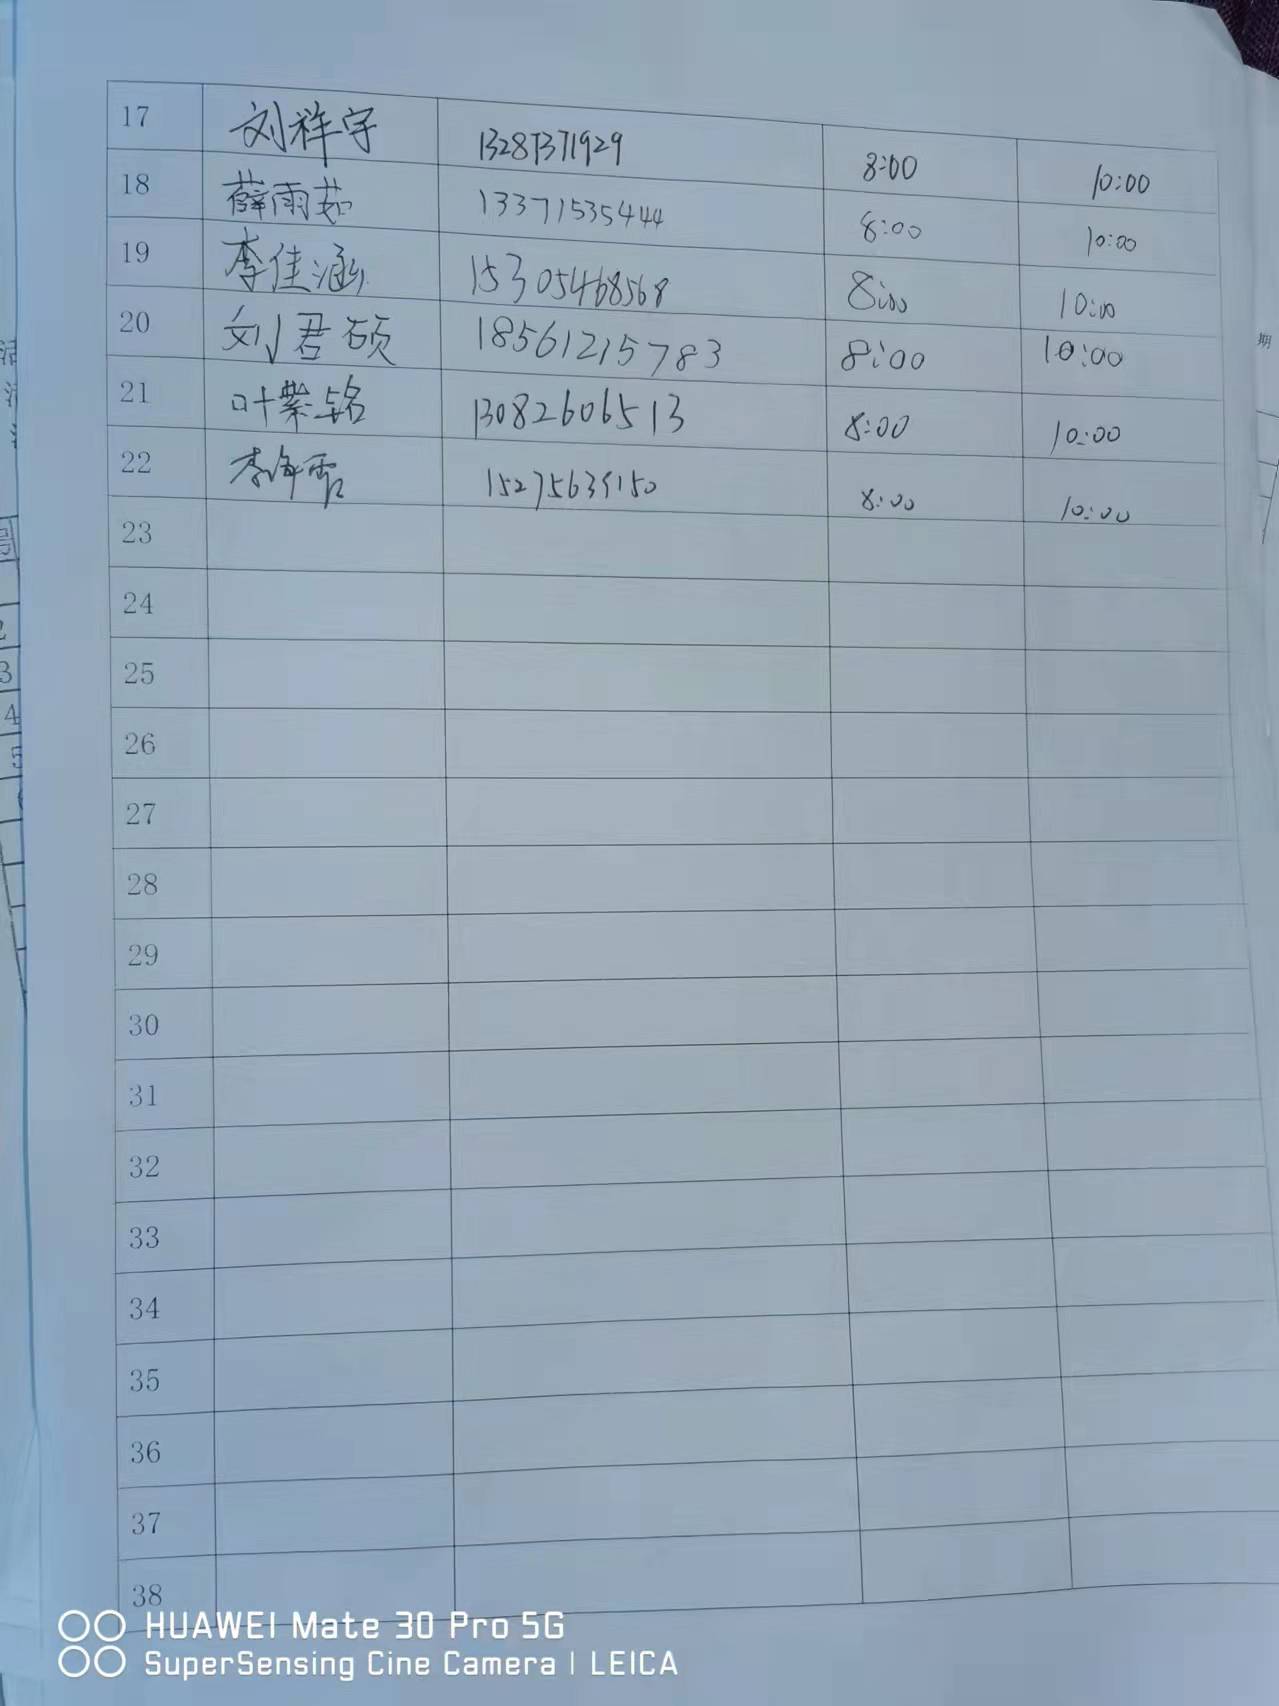 17 刘祥宇 13287371929 8:00 10:00
18 薛雨茹 13371535444 8:00 10:00
19 李佳涵 15305468568 8:00 10:00
20 刘君硕 18561215783 8:00 10:00
21 叶紫铭 13082606513 8:00 10:00
22 8:00 10:00
23
24
25
26
27
28
29
30
31
32
33
34
35
36
37
38
期
2
3
4
5
HUAWEI Mate 30 Pro 5G
SuperSensing Cine Camera | LEICA